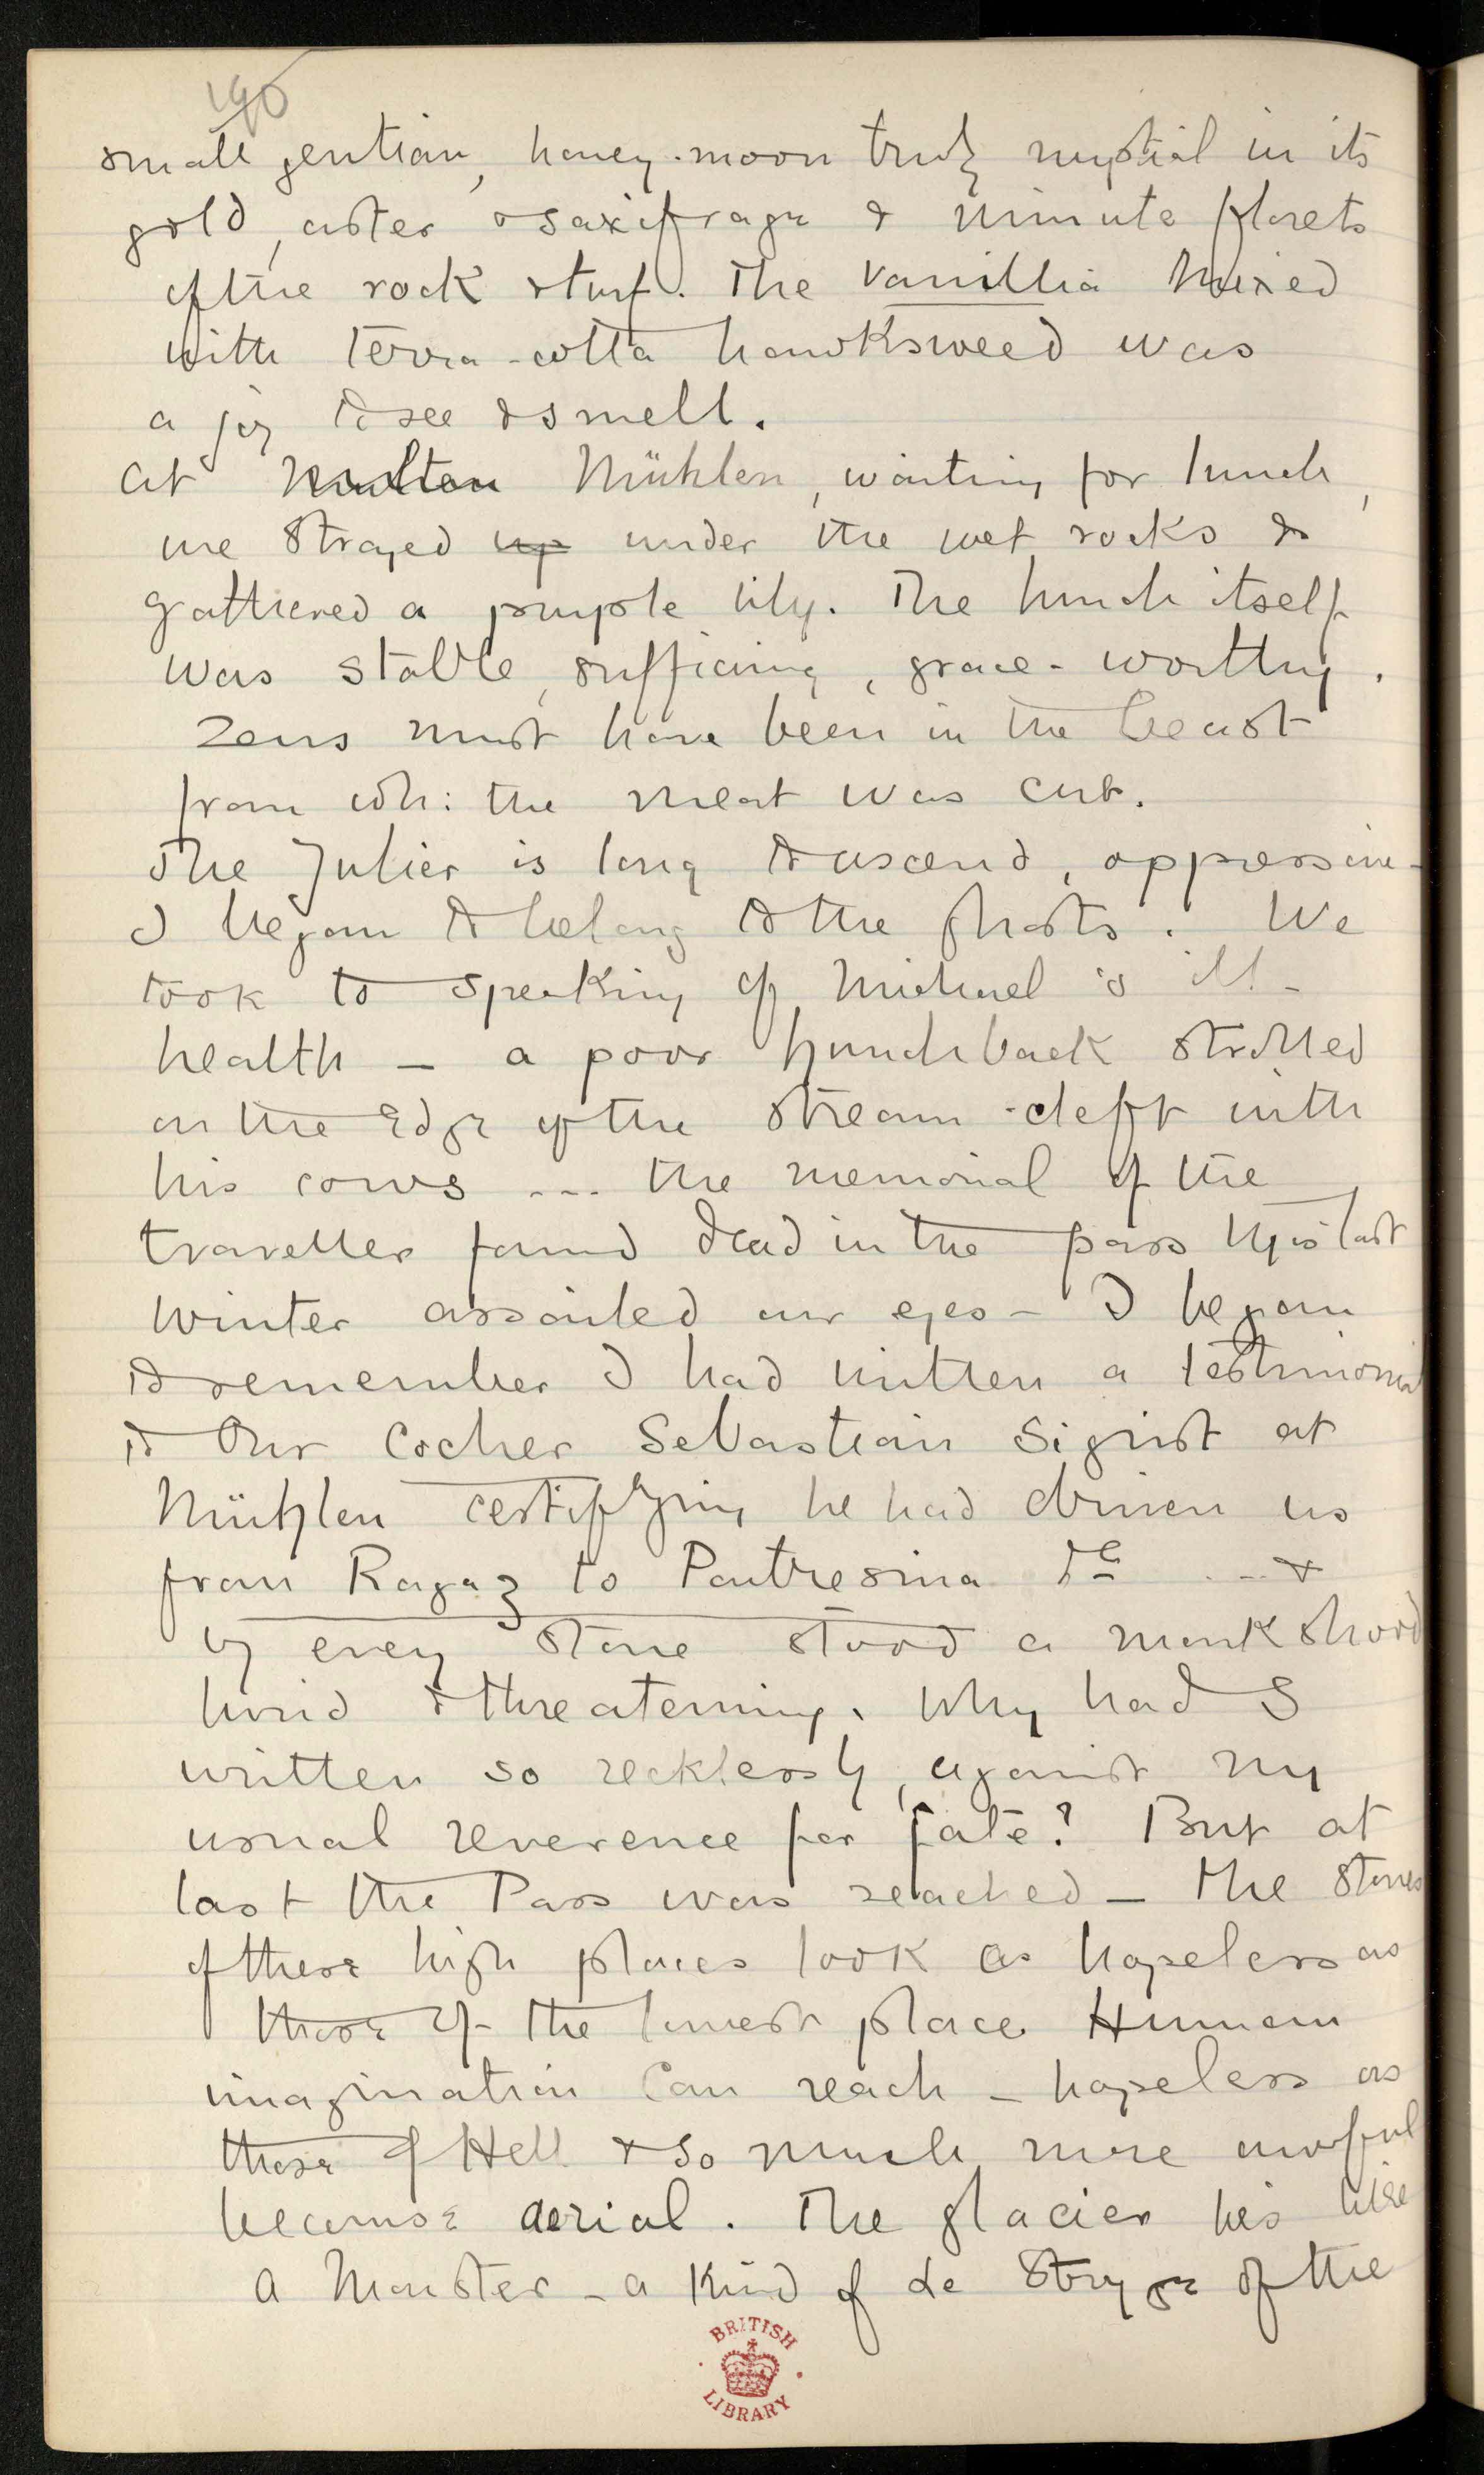 190
small gentian, honey-moon truly nuptial in its
gold, aster & saxifrage & minute florets
of the rock & turf. The vanillia mixed
with terra-cotta hawksweed was
a joy to see & smell.
At Multen Mühlen, waiting for lunch,
we strayed up under the wet rocks &
gathered a purple lily. The lunch itself
was stable, sufficing, grace-worthy.
Zeus must have been in the beast
from wh: the meat was cut.
The Julier is long to ascend, oppressive-
I began to belong to the ghosts. We
took to speaking of Michael's ill-
health - a poor hunchback strolled
on the edge of the stream-cleft with
his cows ... the memorial of the
traveller found dead in the pass this last
winter assailed our eyes - I began
to remember I had written a testimonial
to Our Cocher Sebastian Sigrist at
Mühlen certifying he had driven us
from Ragaz to Pontresina &c ... &
by every stone stood a monkshood
lurid & threatening. Why had I
written so recklessly, against my
usual reverence for fate? But at
last the Pass was reached - the stones
of these high places look as hopeless as
those of the lowest place Human
imagination can reach - hopeless as
those of Hell & so much more awful
because aerial. The glacier lies like
a Monster - a kind of Le Stryge of the
BRITISH
LIBRARY